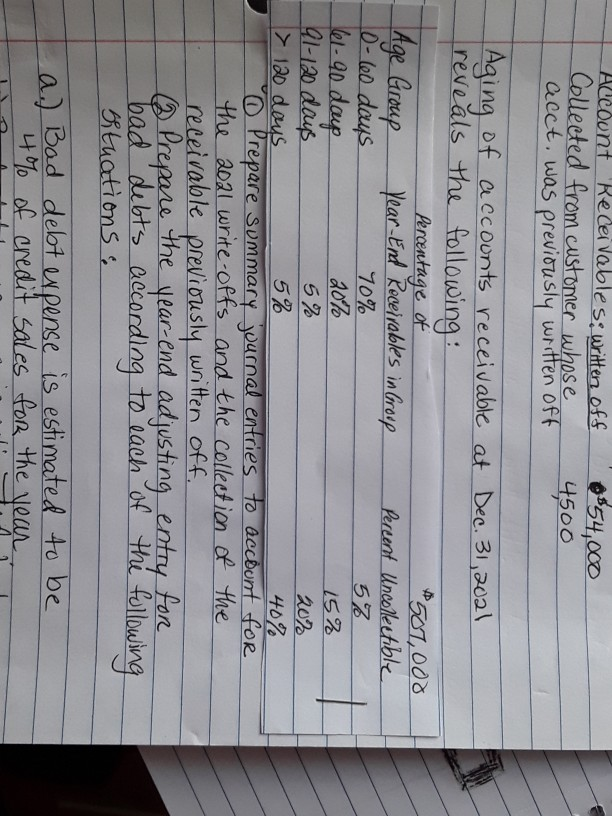 Account Receivables: written off $54,000
Collected from customer whose
acct. was previously written off 4,500
Aging of accounts receivable at Dec. 31, 2021
reveals the following:
Percentage of $507,000
Age Group Year-End Receivables in Group Percent Uncollectible
0-60 days 70% 5%
61-90 days 20% 15%
91-120 days 5% 20%
> 120 days 5% 40%
① Prepare summary journal entries to account for
the 2021 write-offs and the collection of the
receivable previously written off.
② Prepare the year-end adjusting entry for
bad debts according to each of the following
situations:
a.) Bad debt expense is estimated to be
4% of credit sales for the year.